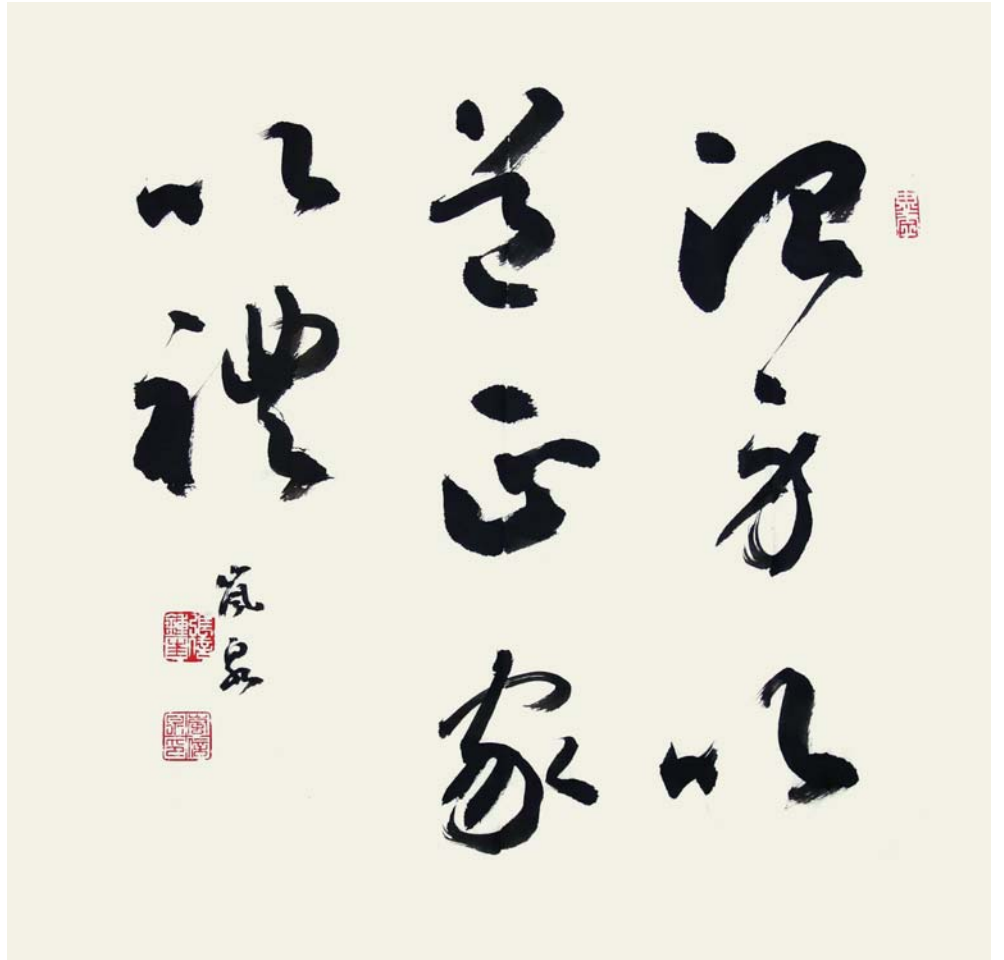 治身以
道正家
以禮
嵐泉